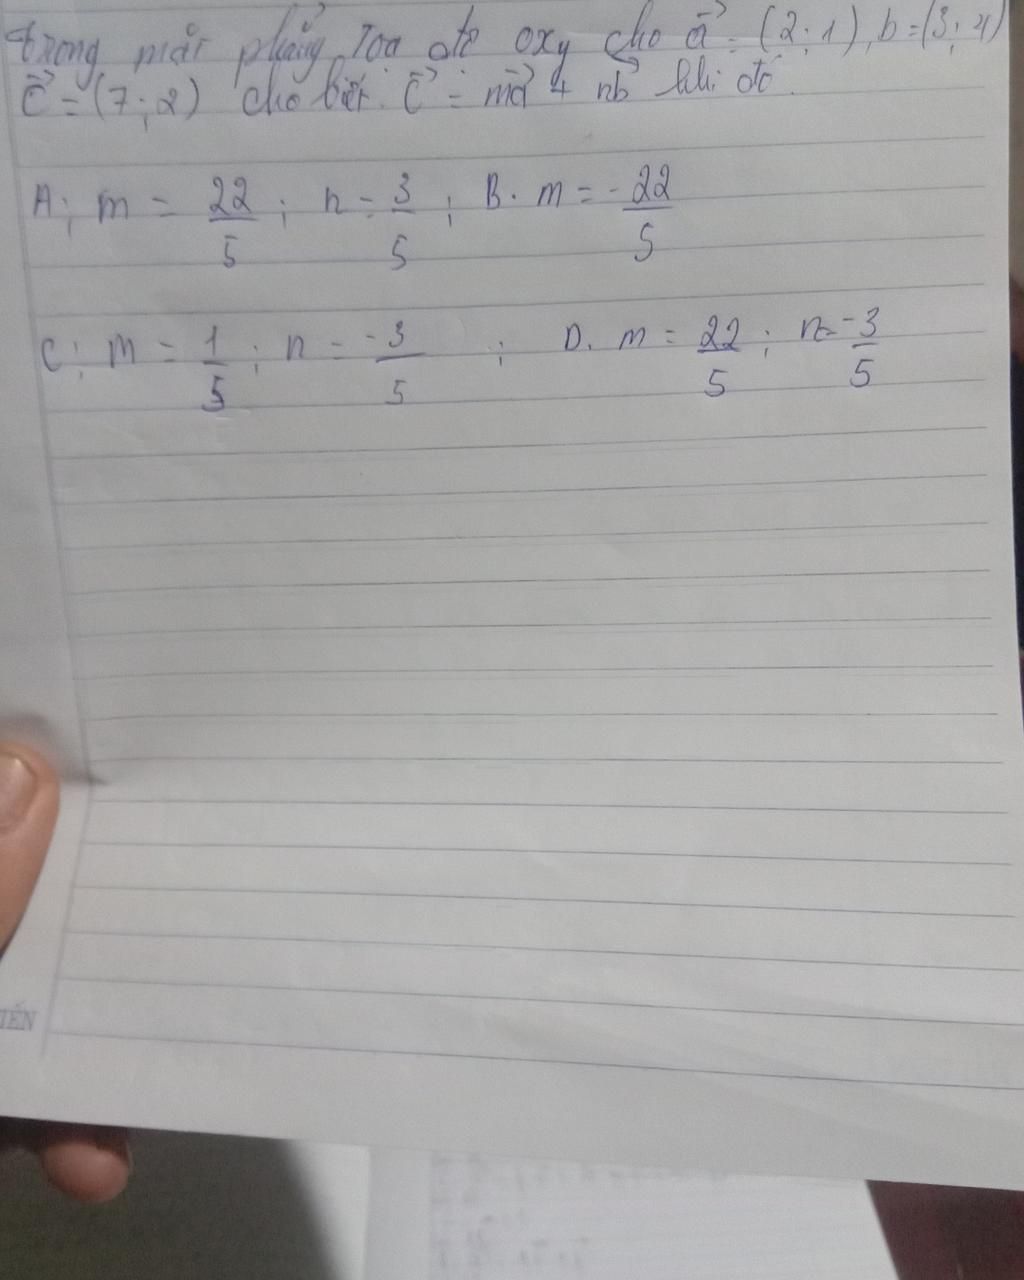 trong mặt phẳng Toạ độ oxy cho a⃗ = (2; 1), b = (3; 4)
c⃗ = (7; 2) cho biết. c⃗ = ma⃗ + nb⃗ khi đó.
A; m = 22/5 ; n = 3/5 ; B. m = -22/5
C; m = 1/5 ; n = -3/5 ; D. m = 22/5 ; n = -3/5
TIẾN